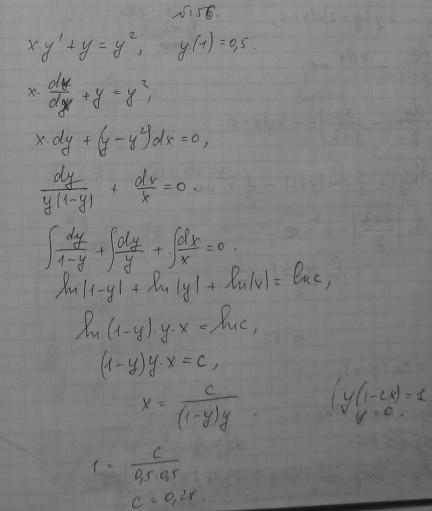 №156.
x·y' + y = y², y(1) = 0,5.
x·dy/dx + y = y²,
x·dy + (y − y²)dx = 0,
dy/y(1−y) + dx/x = 0.
∫dy/1−y + ∫dy/y + ∫dx/x = 0.
ln|1−y| + ln|y| + ln|x| = lnc,
ln(1−y)·y·x = lnc,
(1−y)y·x = c,
x = c/(1−y)y. (y(1−cx) = 1
y = 0.
1 = c/0,5·0,5
c = 0,25.